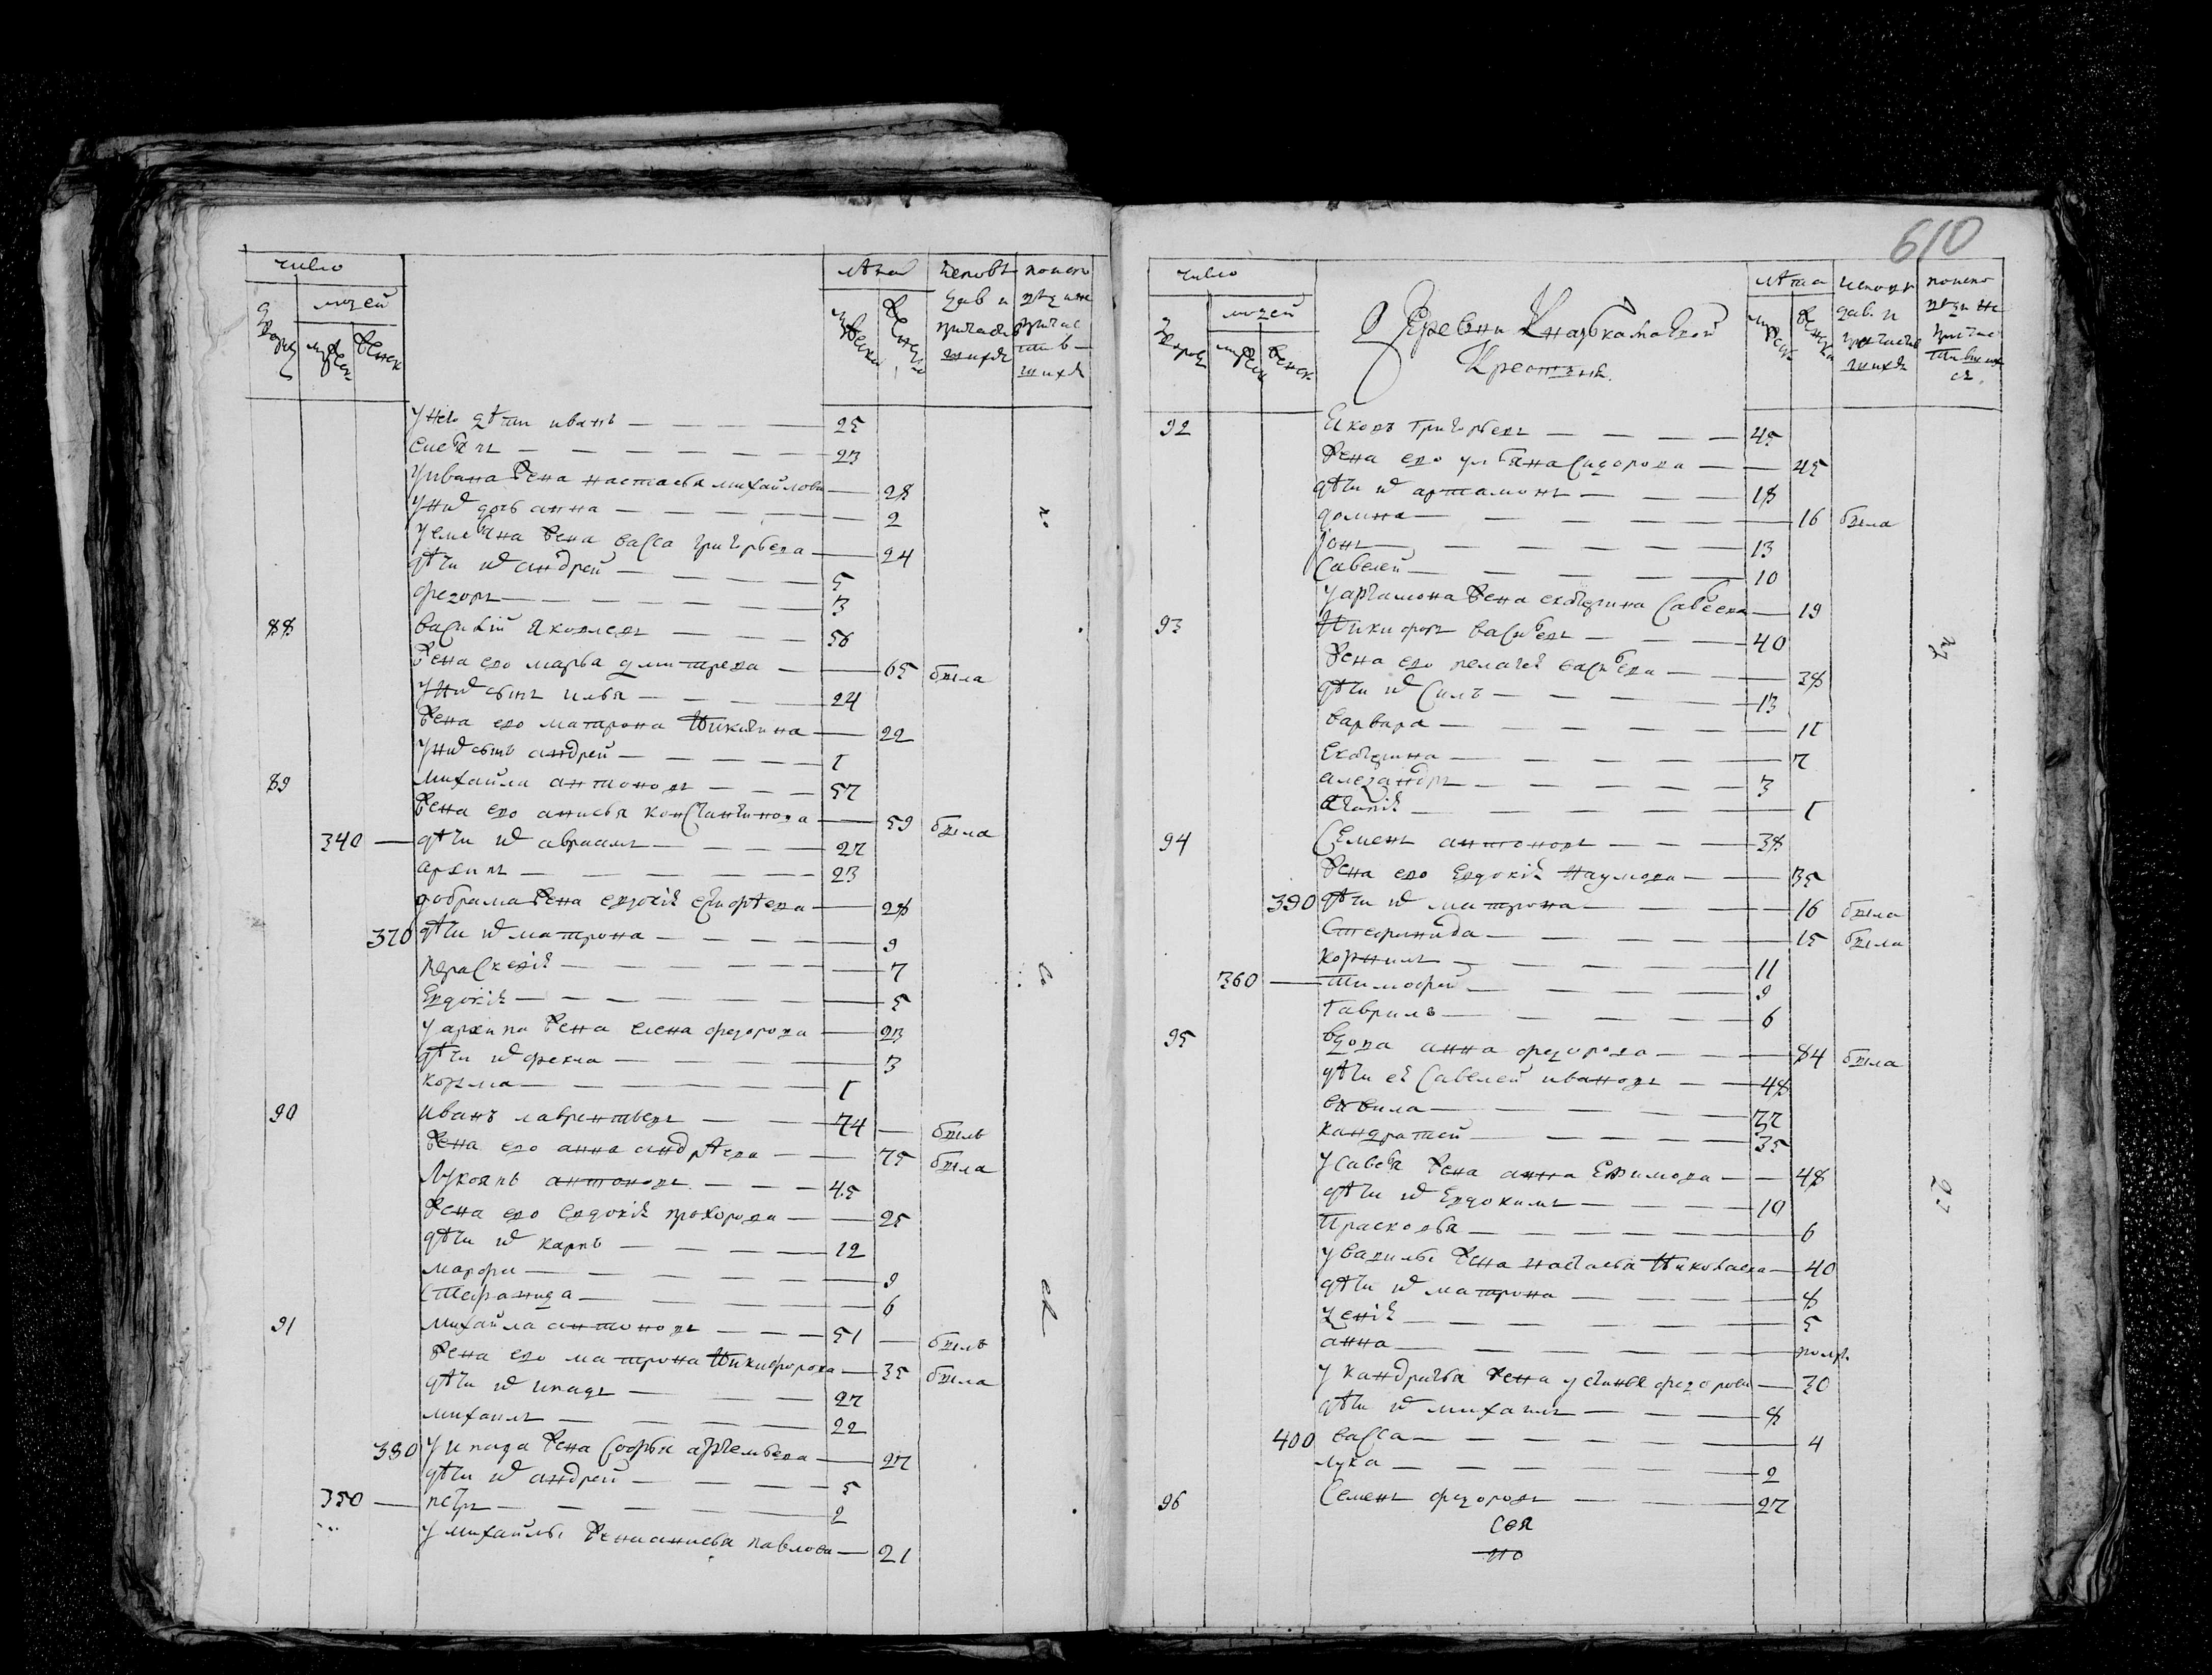 число
дворовъ
людей
мужеск
женск
лѣта
мужеска
женска
исповѣ
дав и
причасти
шихся
поиспо
вѣд и не
причас
тив
шихся
у него дѣти иванъ 25
емельянъ 23
у ивана жена настасья михайлова 28
у них дочь анна 2
у емельяна жена васса григорьева 24
дѣти их андрей 5
федоръ 3
88 василий яковлевъ 56
жена ево марѳа дмитрева 65 была
у них сынъ илья 24
жена ево матрона никитина 22
у них сынъ андрей 1
89 михайла антоновъ 57
жена ево анисья константинова 59 была
340 дѣти их авраамъ 27
архипъ 23
у абрама жена евдокия 28
370 дѣти их матрона 9
параскевия 7
евдокия 5
у архипа жена елена федорова 23
дѣти их фекла 3
козма 1
90 иванъ лаврентьевъ 74 былъ
жена ево анна андрѣева 75 была
лукоянъ антоновъ 45
жена ево евдокия прохорова 25
дѣти их карпъ 12
марфа 9
стефанида 6
91 михайла антоновъ 51 былъ
жена ево матрона никифорова 35 была
дѣти их ипатъ 27
михаилъ 22
380 у ипата жена софья артемьева 27
дѣти их андрей 5
350 петръ 2
у михайлы жена анисья павлова 21
610
число
дворовъ
людей
мужеск
женск
Деревни
Крестьяня
лѣта
мужеск
женска
исповѣ
дав и
причасти
шихся
поиспо
вѣд и не
причас
тивших
ся
92 яковъ григорьевъ 45
жена ево ульяна сидорова 45
дѣти их артамонъ 18
домна 16 была
іонъ 13
савелей 10
у артамона жена екатерина савельева 19
93 никифоръ васильевъ 40
жена ево пелагея васильева 38
дѣти их силъ 13
варвара 11
екатерина 7
александръ 3
1
94 семенъ антоновъ 38
жена ево евдокия наумова 35
390 дѣти их матрона 16 была
стефанида 15 была
корнилъ 11
360 тимофей 9
гаврила 6
95 вдова анна федорова 84 была
дѣти ея савелей ивановъ 48
вавила 37
кандратей 35
у савелья жена анна ефимова 48
дѣти их евдокимъ 10
прасковья 6
у вавилы жена настасья николаева 40
дѣти их матрона 8
ксения 5
анна
у кандратья жена устинья федорова 30
дѣти их михаилъ 8
400 васса 4
лука 2
96 семенъ федоровъ 27